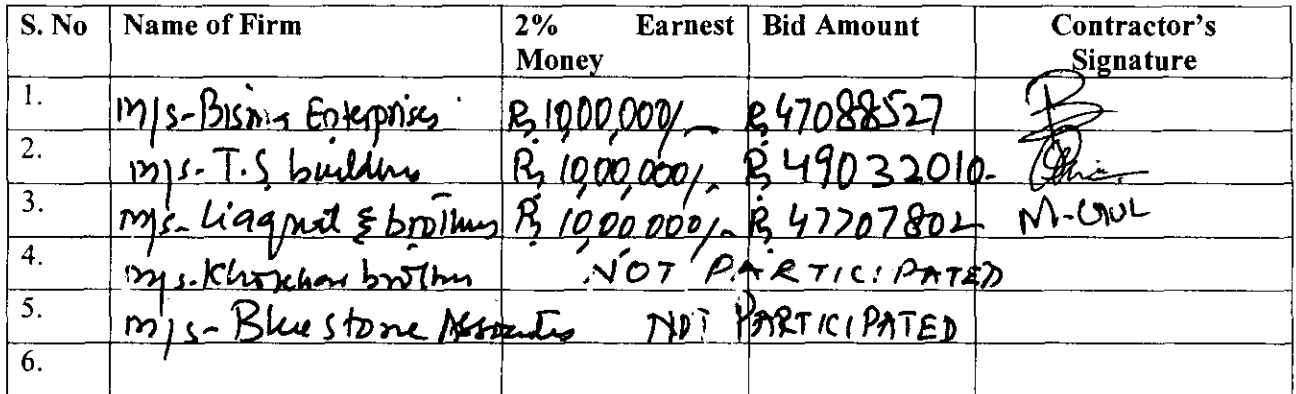 S. No Name of Firm 2% Earnest Money Bid Amount Contractor's Signature
1. M/s-Bisma Enterprises Rs 10,00,000/- Rs 47088527
2. M/s-T.S builders Rs 10,00,000/- Rs 49032010-
3. M/s-Liaquat & brothers Rs 10,00,000/- Rs 47707802 M-GUL
4. M/s-Khokhar brothers NOT PARTICIPATED
5. M/s-Blue stone Associates NOT PARTICIPATED
6.